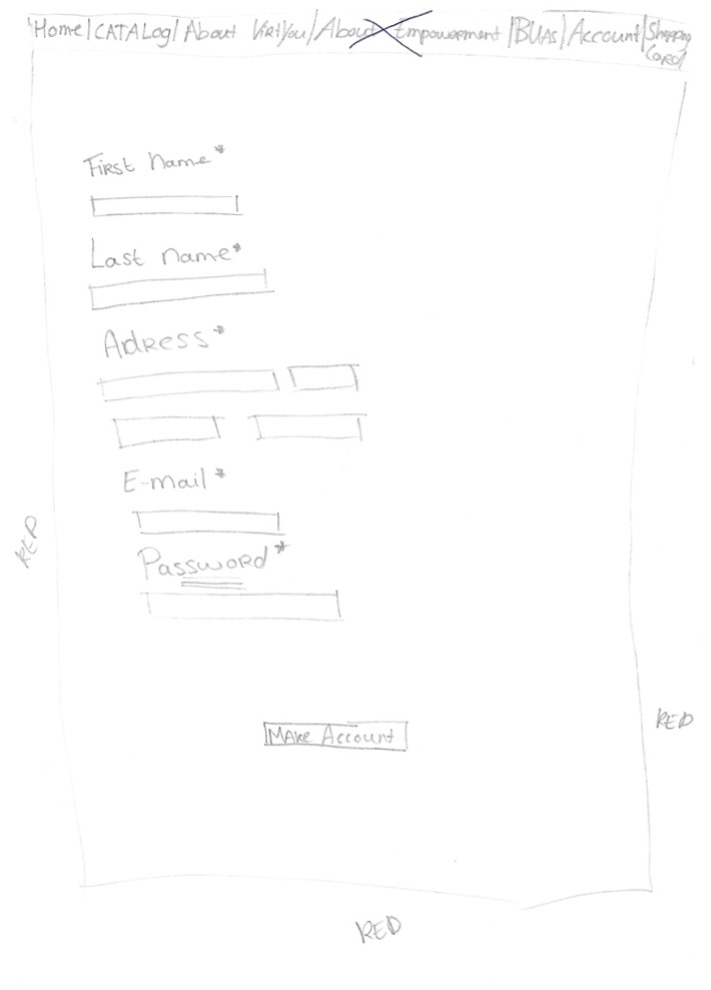 Home | CATALog | About VirtYou | About Empowerment | BUAs | Account | Shopping
First name*
Last name*
Adress*
E-mail*
Password*
RED
RED
MAKe Account
RED